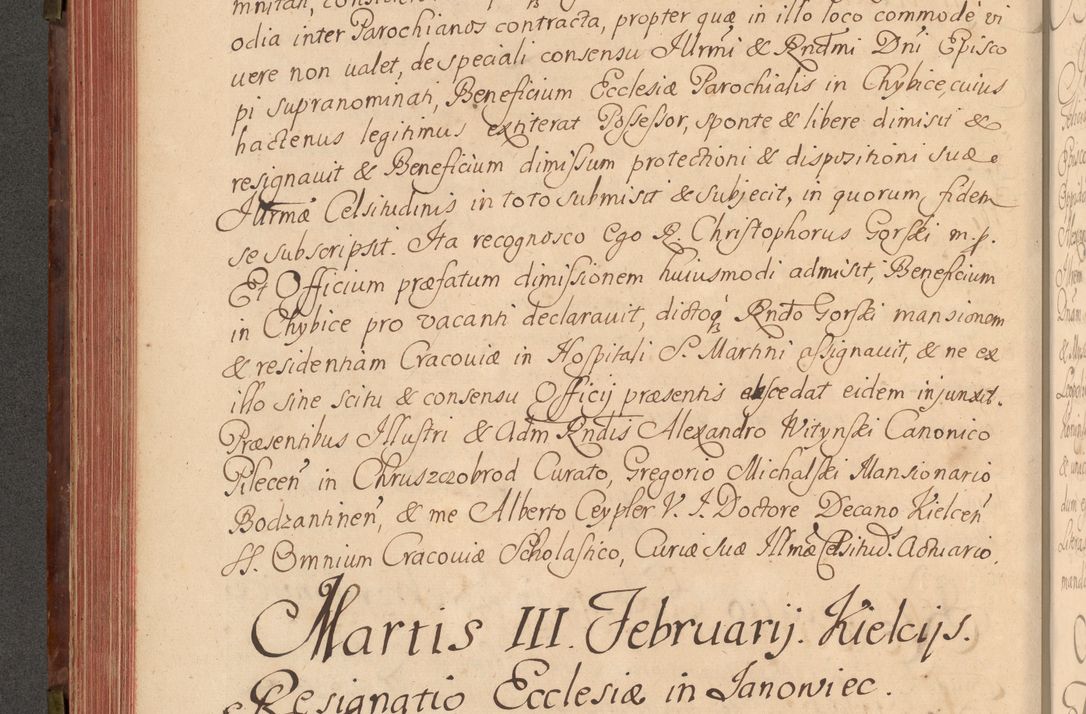 odia inter Parochianos contracta, propter quæ in illo loco commodè vi
vere non valet, de speciali consensu Jllrmi & Rndmi Dni Episco
pi supranominati, Beneficium Ecclesiæ Parochialis in Chybice, cuius
hactenus legitimus extiterat Possessor, sponte & libere dimisit &
resignavit & Beneficium dimissum protectioni & dispositioni suæ
Jllrmæ Celsitudinis in toto submisit & subjecit, in quorum fidem
se subscripsit. Ita recognosco Ego R. Christophorus Gorski m.p.
Et Officium præfatum dimissionem huiusmodi admisit, Beneficium
in Chybice pro vacanti declaravit, dictoq Rndo Gorski mansionem
& residentiam Cracoviæ in Hospitali S. Martini assignavit, & ne ex
illo sine scitu & consensu Officij præsentis abscedat eidem injunxit.
Præsentibus Jllustri & Adm Rndis Alexandro Witynski Canonico
Pilecen in Chruszczobrod Curato, Gregorio Michalski Mansionario
Bodzantinen & me Alberto Ceypler V. J. Doctore Decano Kielcen
SS. Omnium Cracoviæ Scholastico, Curiæ suæ Jllmæ Celsitud. Actuario.
Martis III. Februarij. Kielcijs.
Resignatio Ecclesiæ in Janowiec.